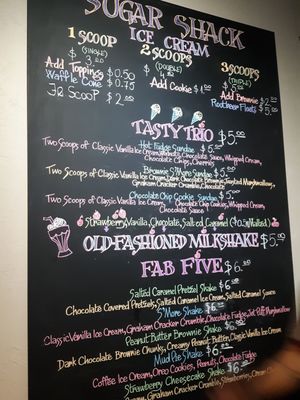 SUGAR SHACK
ICE CREAM
1 SCOOP 2 SCOOPS 3 SCOOPS
(SINGLE) (DOUBLE)
Add Topping $0.50 Add Cookie $1.00 Add Brownie $2.00
Waffle Cone $0.75 Rootbeer Floats
Jr Scoop $2.00
TASTY TRIO $5.00
Hot Fudge Sundae $5.00
Two Scoops of Classic Vanilla Ice Cream, Chocolate Sauce, Whipped Cream,
Chocolate Chips, Cherries
Brownie S'More Sundae $5.00
Two Scoops of Classic Vanilla Ice Cream, Dark Chocolate Brownie, Toasted Marshmallows,
Graham Cracker Crumble, Chocolate
Chocolate Chip Cookie Sundae $5.00
Two Scoops of Classic Vanilla Ice Cream, Chocolate Chip Cookies, Whipped Cream,
Chocolate Sauce
Strawberry, Vanilla, Chocolate, Salted Caramel
OLD-FASHIONED MILKSHAKE $5.00
FAB FIVE $6.00
Salted Caramel Pretzel Shake $6.00
Chocolate Covered Pretzels, Salted Caramel Ice Cream, Salted Caramel Sauce
S'More Shake $6.00
Classic Vanilla Ice Cream, Graham Cracker Crumble, Chocolate Fudge, Marshmallow
Peanut Butter Brownie Shake $6.00
Dark Chocolate Brownie Chunks, Creamy Peanut Butter, Classic Vanilla Ice Cream
Mud Pie Shake $6.00
Coffee Ice Cream, Oreo Cookies, Peanuts, Chocolate Fudge
Strawberry Cheesecake Shake $6.00
Graham Cracker Crumble, Strawberries,